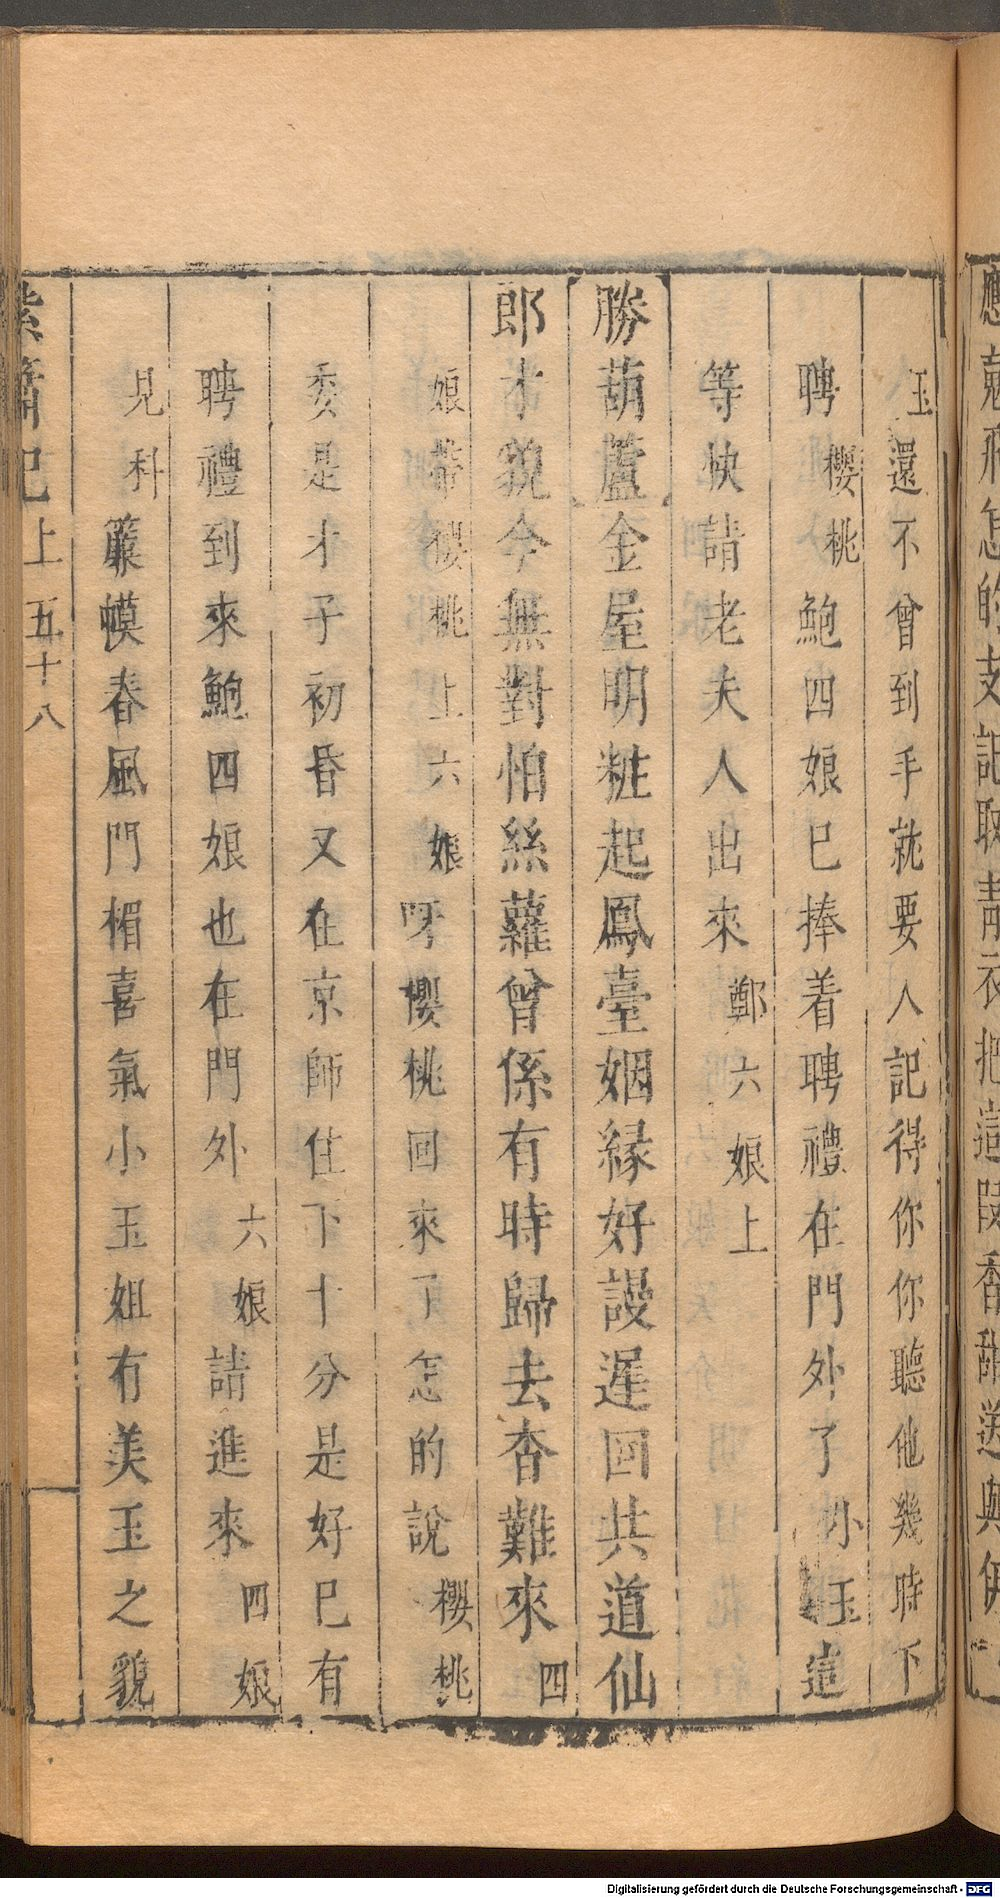 玉還不曾到手就要人記得你你聽他幾時下
聘櫻桃鮑四娘已捧着聘禮在門外了小玉這
等快請老夫人出來鄭六娘上
勝葫蘆金屋明粧起鳳臺姻緣好謾遲回共道仙
郎才貌今無對怕絲蘿曾係有時歸去杳難來四
娘帶櫻桃上六娘呀櫻桃回來了怎的說櫻桃
委是才子初昏又在京師住下十分是好已有
聘禮到來鮑四娘也在門外六娘請進來四娘
見科簾幙春風門楣喜氣小玉姐有美玉之貌
紫簫記上五十八
Digitalisierung gefördert durch die Deutsche Forschungsgemeinschaft - DFG